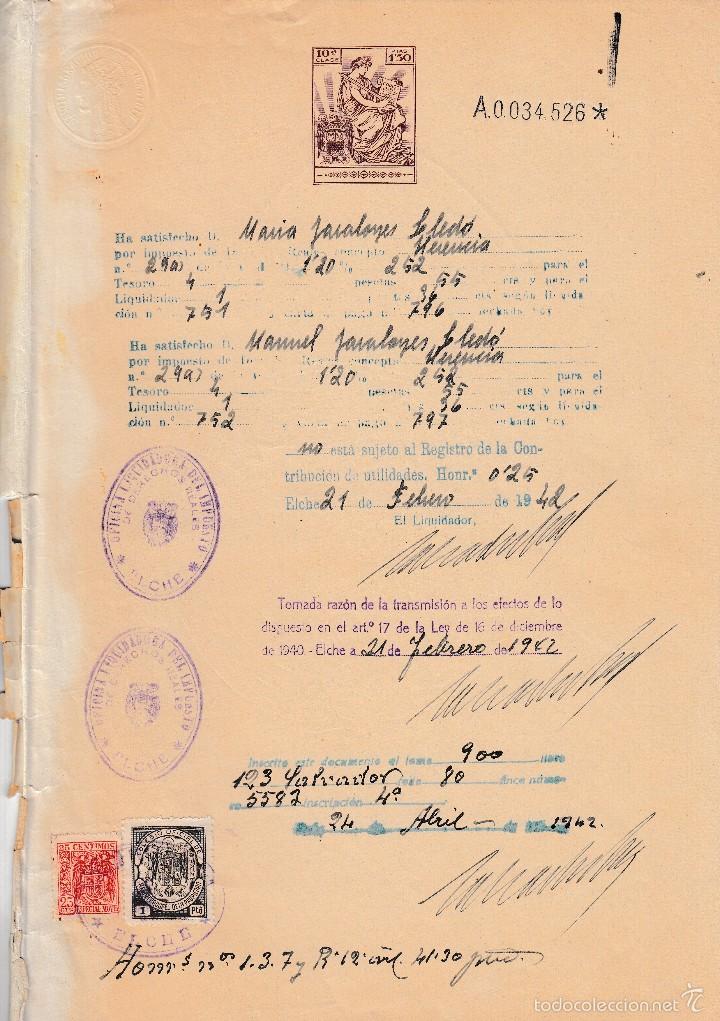 10ª CLASE PTAS 1'50
A.0.034.526 *
Ha satisfecho D. Maria Javaloyes Lledó
por impuesto de Reales concepto Herencia
n.º 29a) 1'20 % 252 para el
Tesoro 4 pesetas 55 cts y para el
Liquidador 1 ptas 36 cts según liquida
ción n.º 751 y carta de pago n.º 796 fechada hoy
Ha satisfecho D. Manuel Javaloyes Lledó
por impuesto de Reales concepto Herencia
n.º 29a) 1'20 % 252 para el
Tesoro 4 pesetas 55 cts y para el
Liquidador 1 36 cts según liquida
ción n.º 752 y carta de pago n.º 797 fechada hoy
no está sujeto al Registro de la Con-
tribución de utilidades. Honr.ª 0'25
Elche 21 de Febrero de 1942
El Liquidador,
OFICINA LIQUIDADORA DEL IMPUESTO
DE DERECHOS REALES
* ELCHE *
Tomada razón de la transmisión a los efectos de lo
dispuesto en el artº 17 de la Ley de 16 de diciembre
de 1940.- Elche a 21 de Febrero de 1942
OFICINA LIQUIDADORA DEL IMPUESTO
DE DERECHOS REALES
* ELCHE *
Inscrito este documento al tomo 900 libro
123 Salvador folio 80 finca número
5582 inscripción 4ª
24 Abril de 1942.
25 CENTIMOS
25 CTS
ESPECIAL MOVIL
1 Pta
* ELCHE *
Hon.s nos 1.3.7 y
41'30
todocoleccion.net